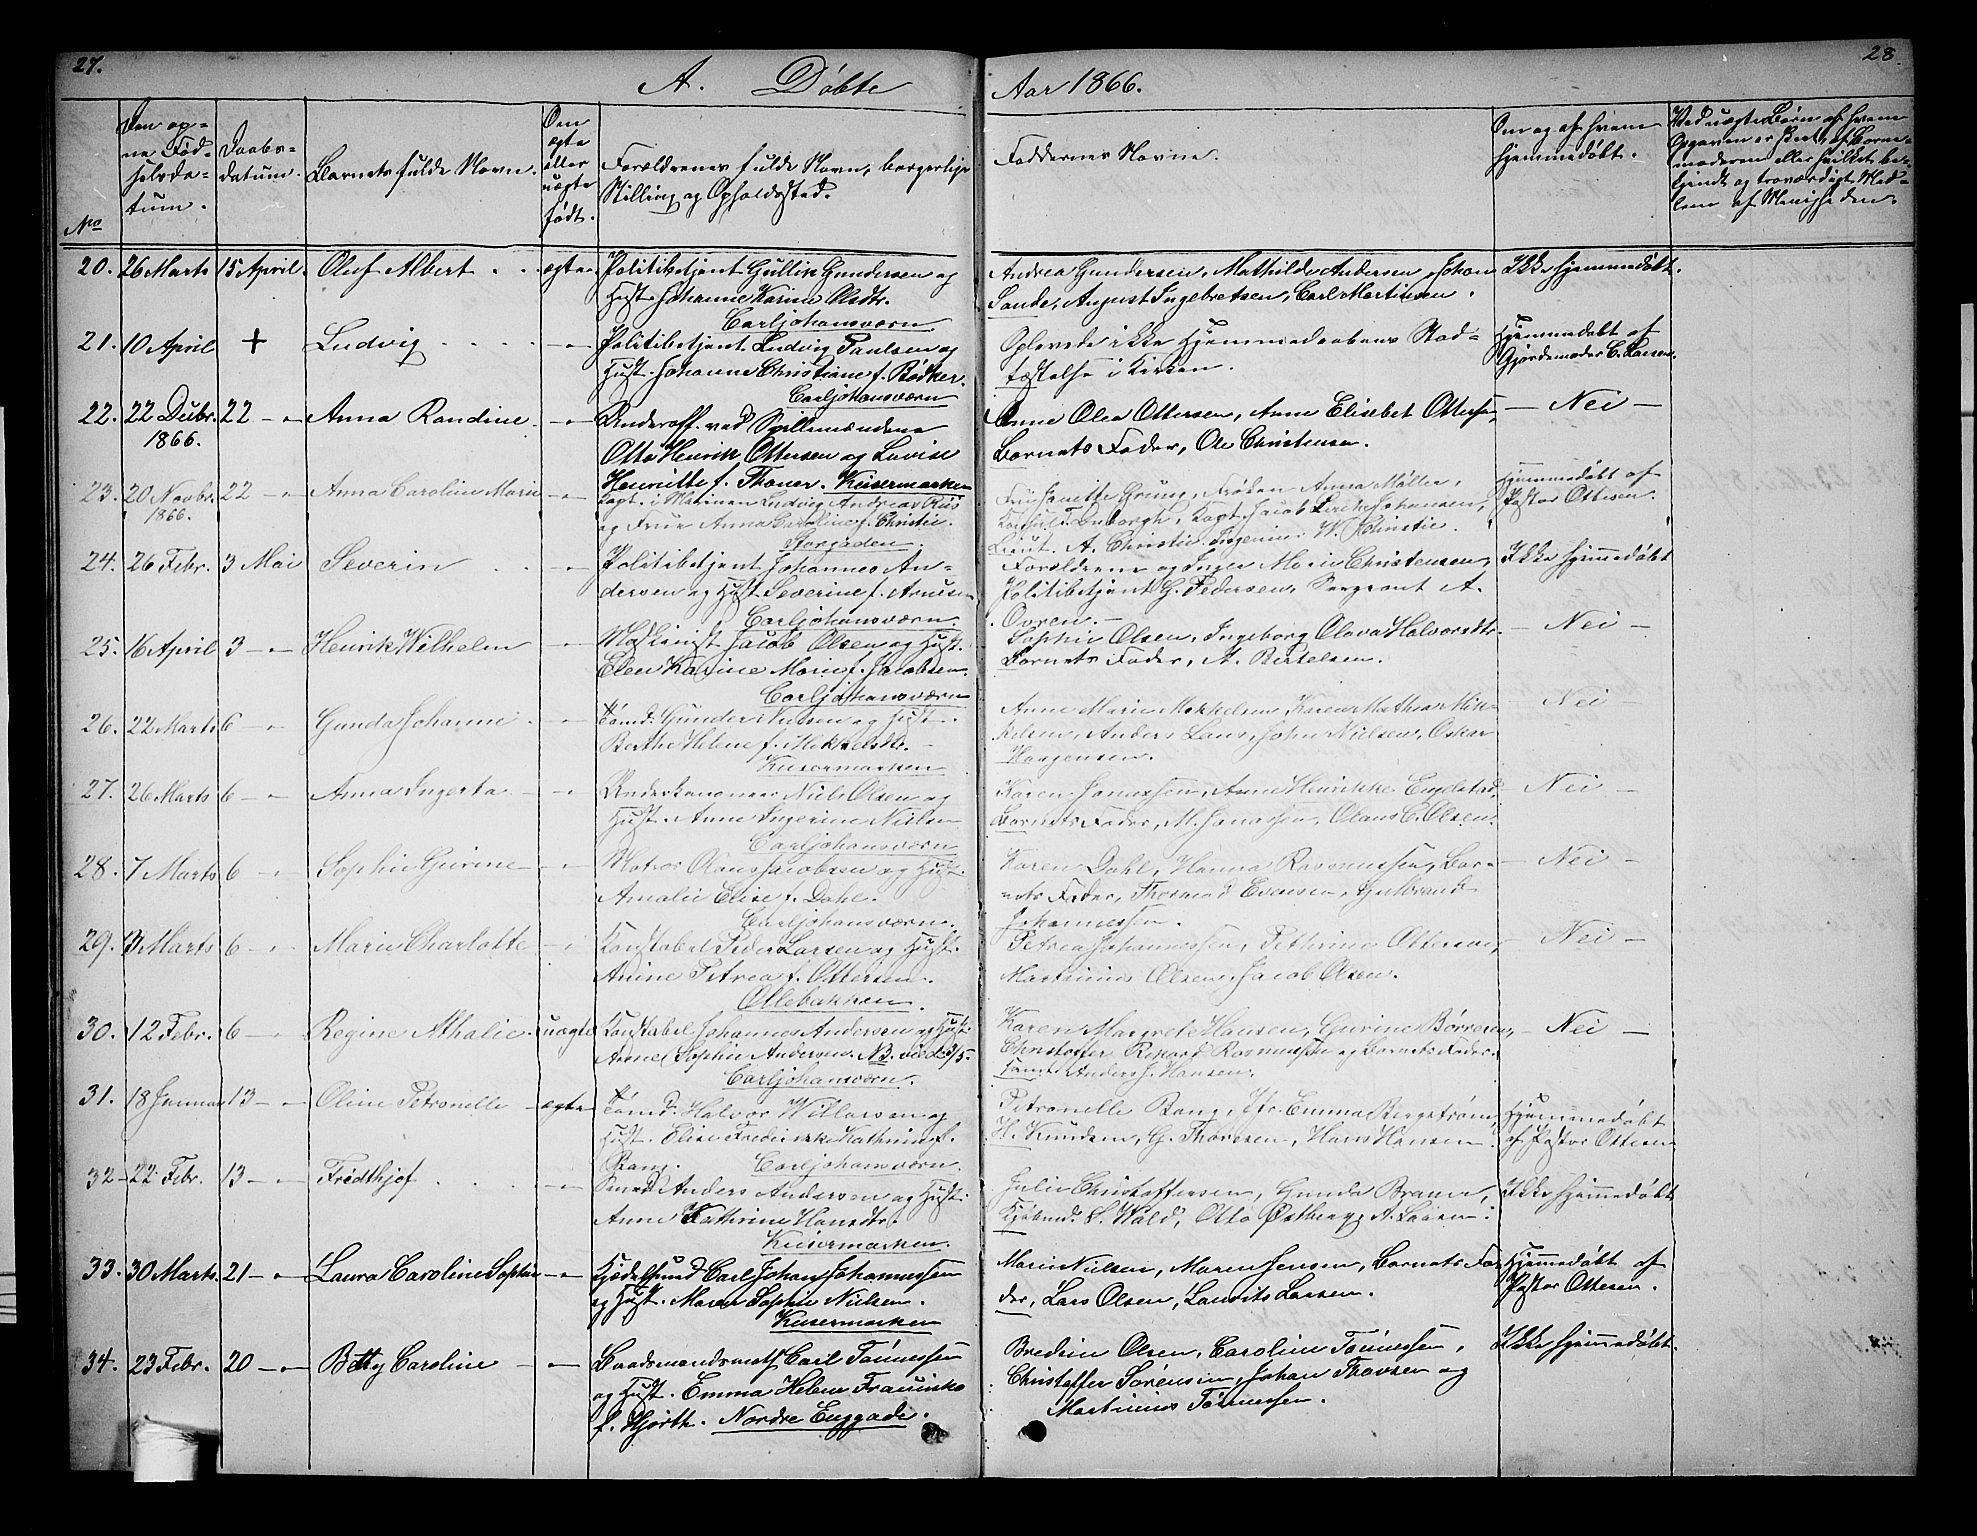 27.
28.
A. Døbte
Aar 1866.
No
Den op=
ne Fød=
selsda=
tum.
Daabs=
datum.
Barnets fulde Navn.
Om
ægte
eller
uægte
født.
Forældrenes fulde Navn, borgerlige
Stilling og Opholdssted.
Faddernes Navne.
Om og af hvem
hjemmedøbt.
Ved uægte Børn af hvem
Opgaven er skeet, af Barne=
moderen eller hvilket be=
kjendt og troværdigt Med=
lem af Menigheden.
20. 26 Marts 15 April. Oluf Albert . . ægte Politibetjent Gullik Gundersen og
Hust. Johanne Karine Olsdtr.
Carljohansværn
Andrea Gundersen, Mathilde Andersen, Johan
Sande, August Ingebretsen, Carl Martinsen.
Ikke hjemmedøbt.
21. 10 April + Ludvig . . . . -"- Politibetjent Ludvig Paulsen og
Hust. Johanne Christiane f. Bødker.
Carljohansværn
Oplevede ikke Hjemmedaabens Stad=
fæstelse i Kirken.
Hjemmedøbt af
Gjordemoder C. Larsen.
22. 22 Decbr. 22 -"- Anna Randine. -"- Underoff. ved Spillemændene
1866.
Otto Henrik Ottersen og Lovise
Henriette f. Thoner. Keisermarken
Anne Olea Ottersen, Anne Elisebet Ottersen,
Barnets Fader, Ole Christensen.
- Nei -
23. 20 Novbr. 22 -"- Anna Caroline Marie -"- Kapt. i Marinen Ludvig Andreas Riis
1866.
og Frue Anna Caroline f. Christie.
Storgaden.
Fru Janette Grung, Frøken Anna Møller,
Konsul Fanborgh, Kapt. Jacob Lerche Johansen,
Lieut. A. Christie, Ingeniør W. Christie.
Hjemmedøbt af
Pastor Ottesen.
24. 26 Febr. 3 Mai Severin . . -"- Politibetjent Johannes An=
dersen og Hust. Severine f. Arnesen
Carljohansværn.
Forældrene og Inger Marie Christensen,
Politibetjent G. Pedersen, Sergeant A.
Ovren.
Ikke hjemmedøbt
25. 16 April 3 -"- Henrik Wilhelm -"- Maskinist Jacob Olsen og Hust.
Elen Karine Marie f. Jacobsen.
Carljohansværn
Sophie Olsen, Ingeborg Olava Halvorsdtr.
Barnets Fader, A. Bertelsen.
- Nei -
26. 22 Marts 6 -"- Gunda Johanne . -"- Tømd. Gunder Nilsen og Hust.
Berthe Helene f. Mikkelsdtr.
Keisermarken
Anne Marie Mekkelsen, Karen Mathea Mik=
kelsen, Anders Lans, John Nielsen, Oskar
Haagensen.
Nei -
27. 26 Marts 6 -"- Anna Ingerta -"- Underkanoneer Niels Olsen og
Hust. Anne Ingerine Nielsen
Carljohansværn
Karen Jonassen, Anne Henrikke Engelstad,
Barnets Fader, M. Jonassen, Olaus C. Olsen.
- Nei -
28. 7 Marts 6 -"- Sophie Gurine -"- Matros Olaus Jacobsen og Hust.
Amalie Elise f. Dahl.
Carljohansværn.
Karen Dahl, Hanna Rasmussen, Bar=
nets Fader, Thormod Evensen, Gulbrand
Johannessen.
- Nei -
29. 13 Marts 6 -"- Marie Charlotte -"- Konstabel Peder Larsen og Hust.
Anine Petrea f. Ottersen.
Ollebakken.
Petrea Johannessen, Pethrine Ottersen,
Martinius Olsen, Jacob Olsen.
- Nei -
30. 12 Febr. 6 -"- Regine Athalie. uægte Konstabel Johannes Andersen og Hust.
Anne Sophie Andersen. NB. viede 3/5.
Carljohansværn.
Karen Margrete Hansen, Gurine Børresen,
Christoffer Rikard Rasmussen og Barnets Fader.
samt Anders J. Hansen.
- Nei -
31. 18 Januar 13 -"- Oline Petronelle - ægte Tømd. Halvor W. Larsen og
Hust. Elise Frederikke Kathrine f.
Bang. Carljohansværn.
Petronelle Bang, Jfr. Emma Bergstrøm,
H. Knudsen, G. Thoresen, Hans Hansen.
Hjemmedøbt
af Pastor Ottesen
32 - 22 Febr. 13 -"- Fredthjof . . . -"- Smed Anders Andersen og Hust.
Anne Kathrine Hansdtr.
Keisermarken.
Julie Christoffersen, Gunda Braner,
Kjøbmd. S. Wold, Otto Østberg, A. Larsen.
Ikke hjemmedøbt
33. 30 Marts. 21 -"- Laura Caroline Sophie -"- Kjedelsmed Carl Johan Johannessen
og Hust. Maren Sophie Nielsen.
Keisermarken
Marie Nielsen, Maren Jensen, Barnets Fa=
der, Lars Olsen, Laurits Larsen.
Hjemmedøbt af
Pastor Ottesen.
34. 23 Febr. 20 -"- Betty Caroline - -"- Baadsmandsmath Carl Tønnessen
og Hust. Emma Helene Fransiska
f. Hjorth. Nordre Enggade.
Bredine Olsen, Caroline Tønnessen,
Christoffer Sørensen, Johan Thorsen og
Martinius Tønnessen.
Ikke hjemmedøbt.